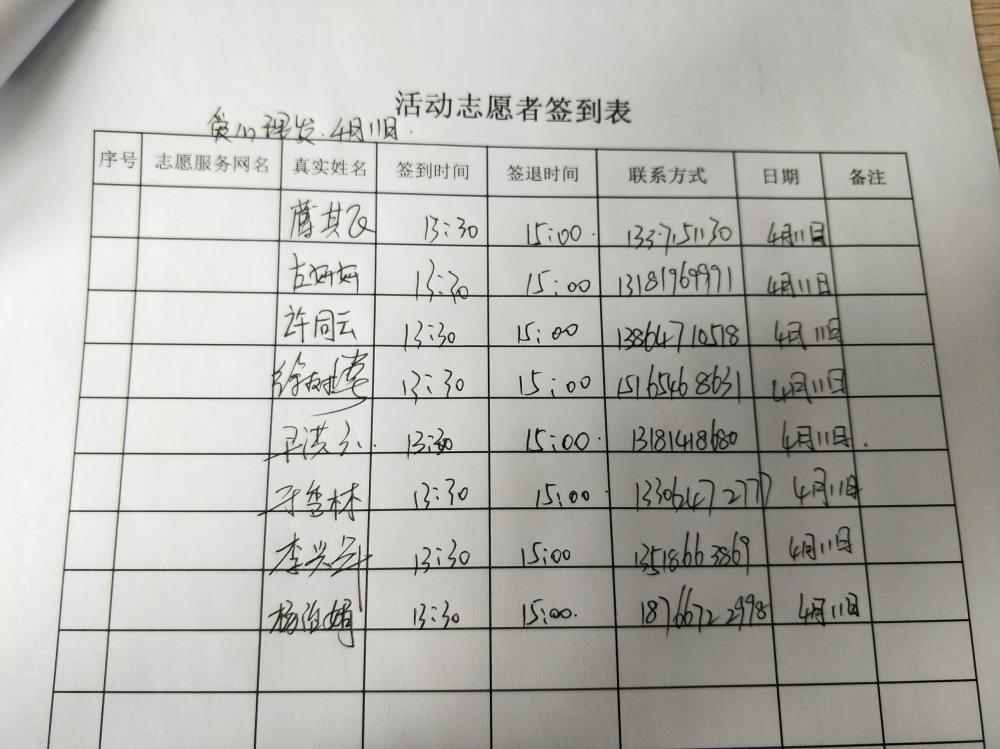 活动志愿者签到表
爱心理发 4月11日.
序号 志愿服务网名 真实姓名 签到时间 签退时间 联系方式 日期 备注
13:30 15:00. 4月11日
13:30 15:00 13181969991 4月11日
许同云 13:30 15:00 13864710518 4月11日
13:30 15:00 15165468631 4月11日
13:30 15:00. 13181418680 4月11日.
于雪林 13:30 15:00. 13306472777 4月11日
13:30 15:00 13518663869 4月11日
13:30 15:00. 18766722998 4月11日